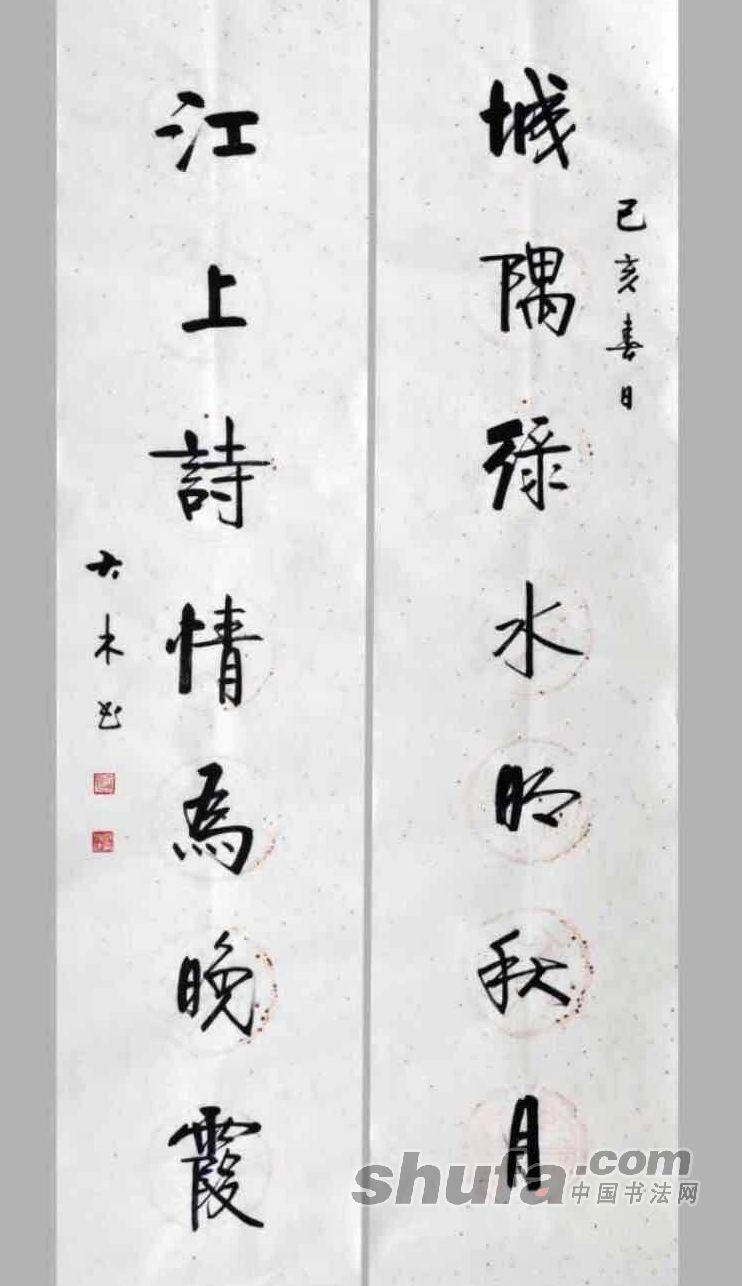 己亥春日
城隅緑水明秋月
江上詩情為晚霞
大木书
shufa.com
中国书法网